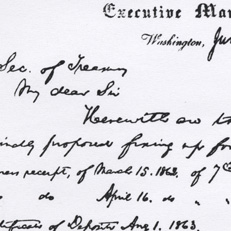 Executive Ma
Washington, Ju
Sec. of Treasury
My dear Sir
Herewith are th
indly proposed fixing up fo
ers receipt, of March 15. 1863, of 7
do April 16. do " "
tificates of Deposite Aug 1. 1863.